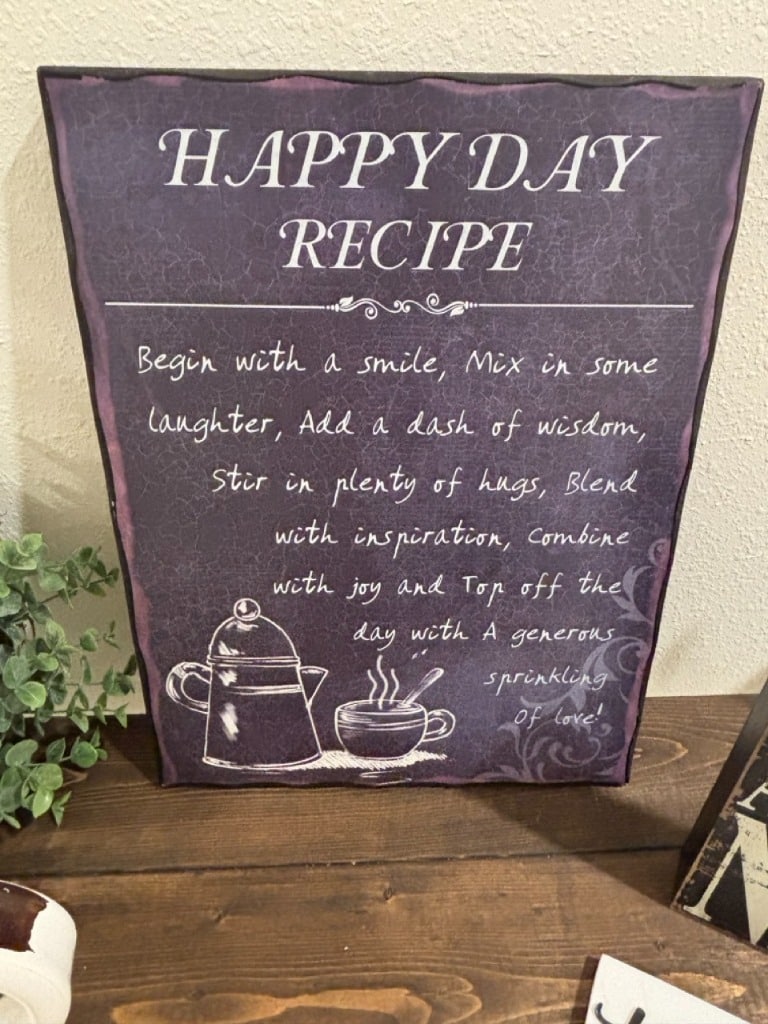 HAPPY DAY
RECIPE
Begin with a smile, Mix in some
laughter, Add a dash of wisdom,
Stir in plenty of hugs, Blend
with inspiration, Combine
with joy and Top off the
day with A generous
sprinkling
Of love!